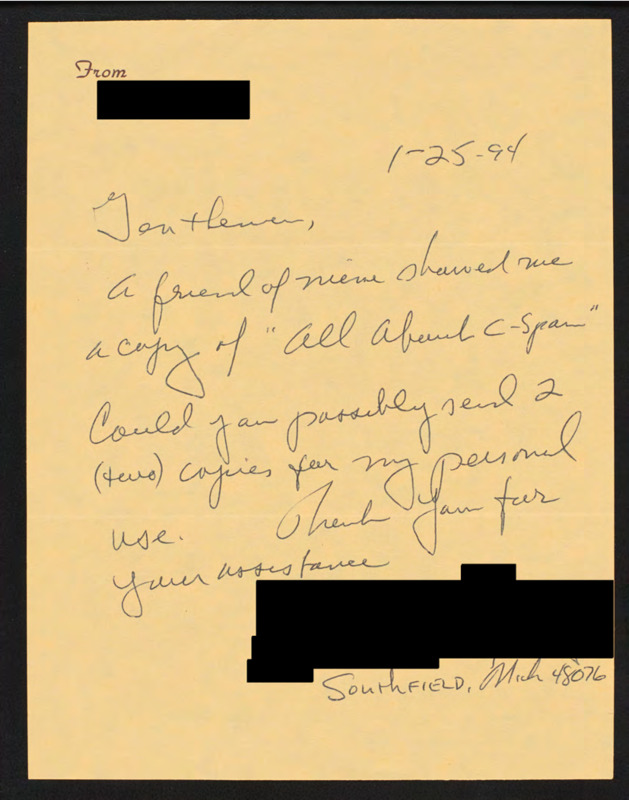 From
1-25-94
Gentlemen,
A friend of mine showed me
a copy of "All About C-Span"
Could you possibly send 2
(two) copies for my personal
use. Thank You for
your assistance
Southfield, Mich 48076